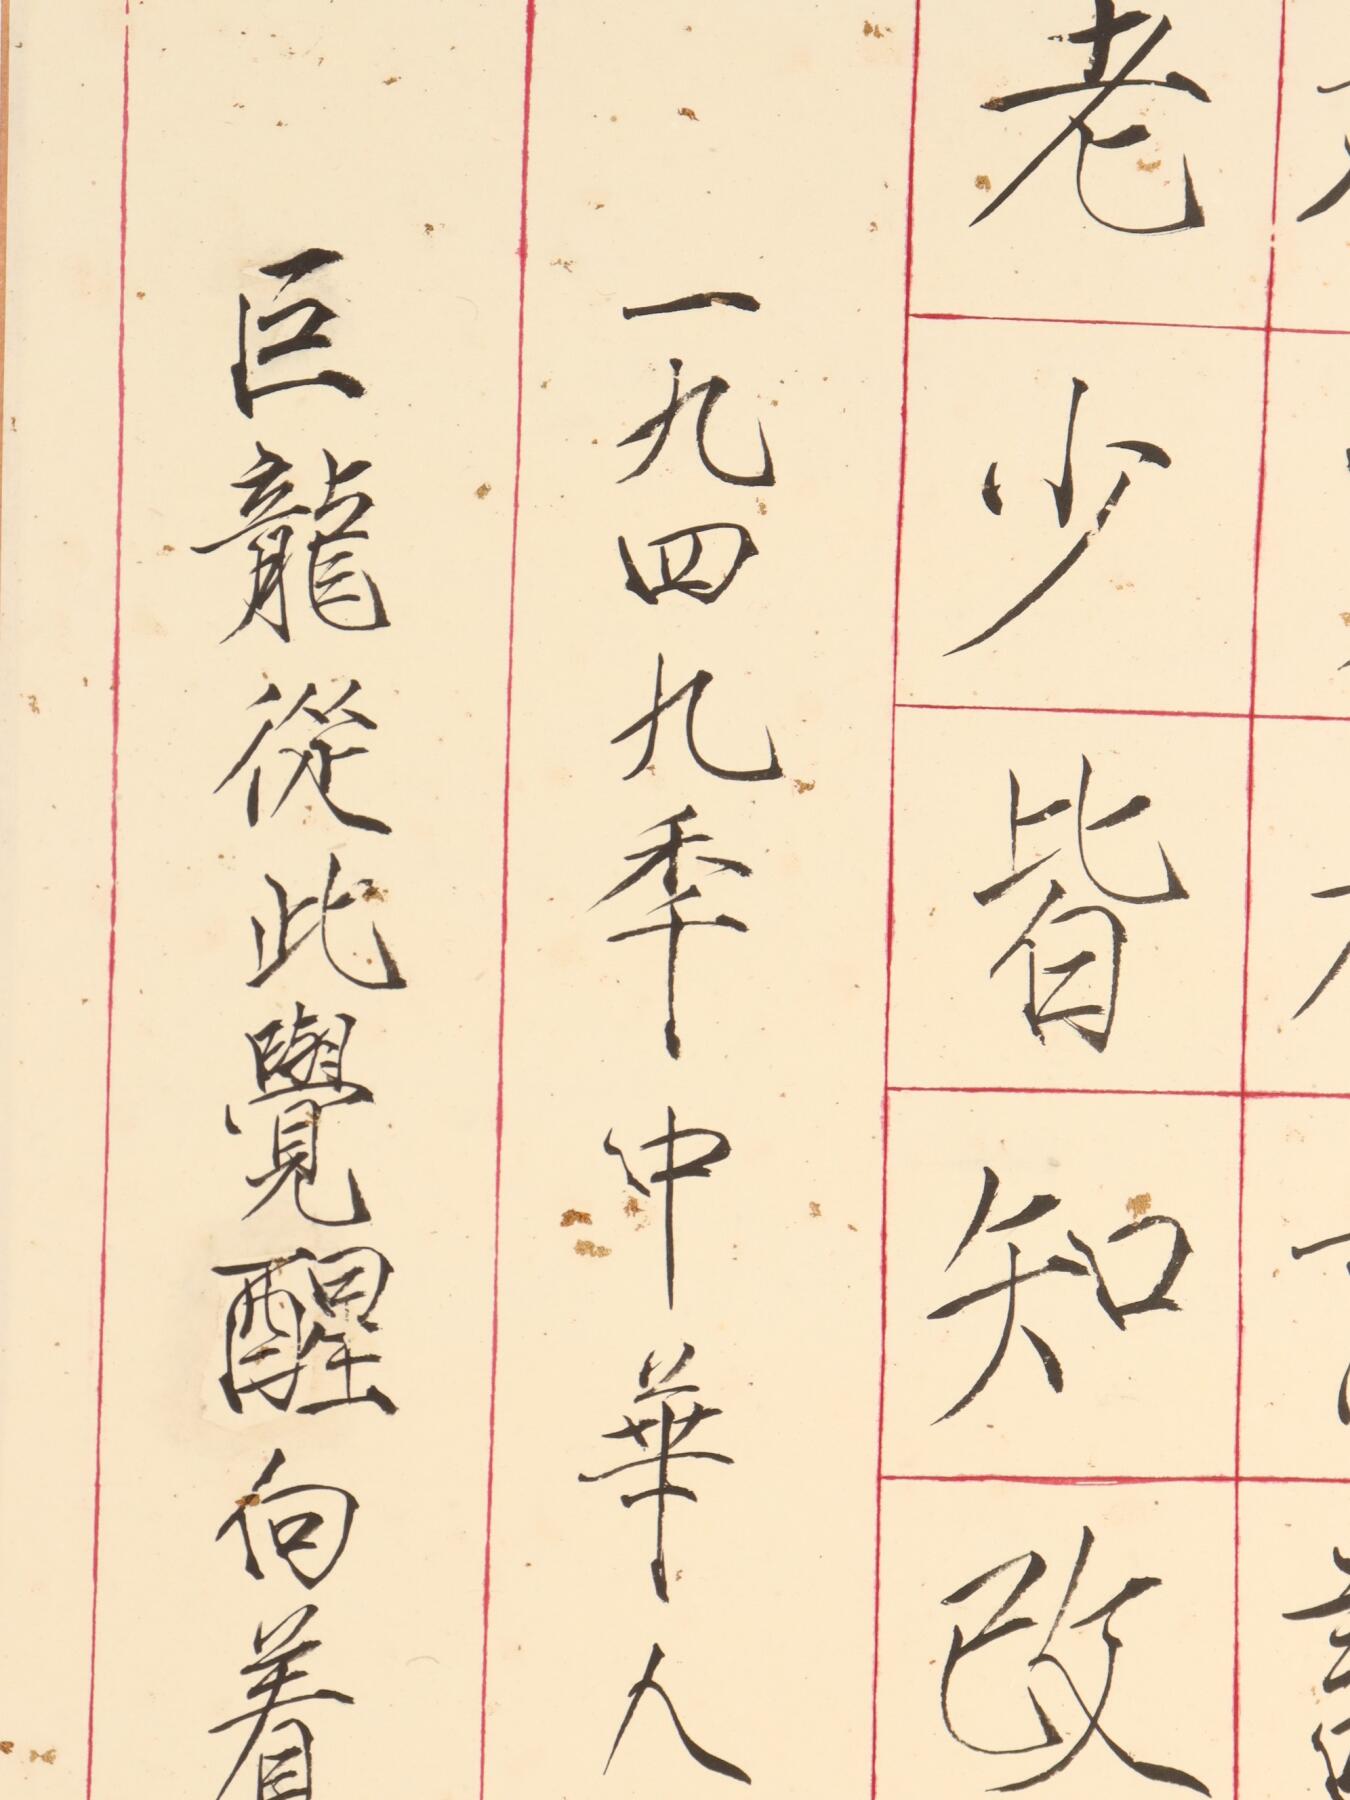 老少皆知改
一九四九秊中華人
巨龍從此覺醒向着